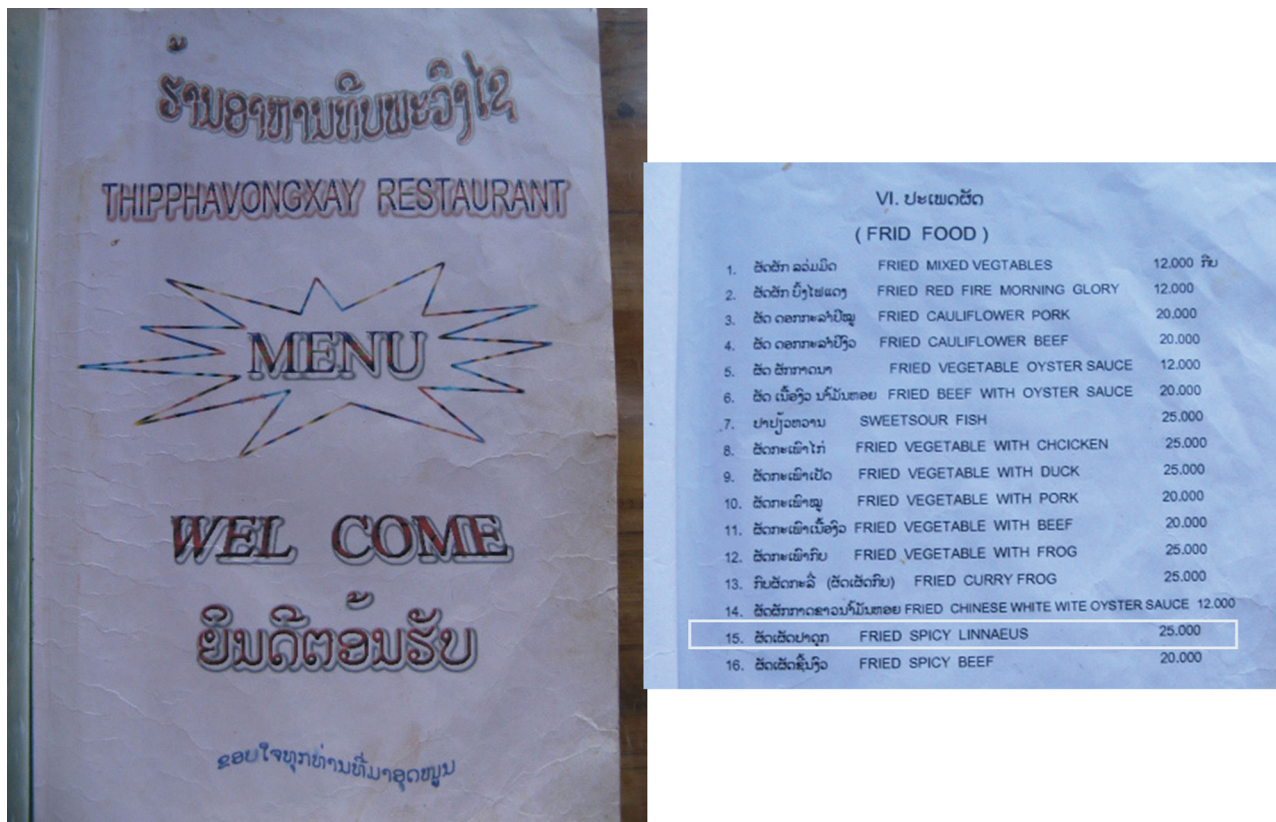 ຮ້ານອາຫານທິບພະວົງໄຊ
THIPPHAVONGXAY RESTAURANT
MENU
WEL COME
ຍິນດີຕ້ອນຮັບ
ຂອບໃຈທຸກທ່ານທີ່ມາອຸດໜູນ
VI. ປະເພດຜັດ
( FRID FOOD )
1. ຜັດຜັກ ລວ່ມມິດ FRIED MIXED VEGTABLES 12.000 ກີບ
2. ຜັດຜັກ ບົ້ງໄຟແດງ FRIED RED FIRE MORNING GLORY 12.000
3. ຜັດ ດອກກະລຳປີໝູ FRIED CAULIFLOWER PORK 20.000
4. ຜັດ ດອກກະລຳປີງົວ FRIED CAULIFLOWER BEEF 20.000
5. ຜັດ ຜັກກາດນາ FRIED VEGETABLE OYSTER SAUCE 12.000
6. ຜັດ ເນື້ອງົວ ນ້ຳມັນຫອຍ FRIED BEEF WITH OYSTER SAUCE 20.000
7. ປາປຽ້ວຫວານ SWEETSOUR FISH 25.000
8. ຜັດກະເພົາໄກ່ FRIED VEGETABLE WITH CHCICKEN 25.000
9. ຜັດກະເພົາເປັດ FRIED VEGETABLE WITH DUCK 25.000
10. ຜັດກະເພົາໝູ FRIED VEGETABLE WITH PORK 20.000
11. ຜັດກະເພົາເນື້ອງົວ FRIED VEGETABLE WITH BEEF 20.000
12. ຜັດກະເພົາກົບ FRIED VEGETABLE WITH FROG 25.000
13. ກົບຜັດກະລີ່ (ຜັດເຜັດກົບ) FRIED CURRY FROG 25.000
14. ຜັດຜັກກາດຂາວນ້ຳມັນຫອຍ FRIED CHINESE WHITE WITE OYSTER SAUCE 12.000
15. ຜັດເຜັດປາດຸກ FRIED SPICY LINNAEUS 25.000
16. ຜັດເຜັດຊີ້ນງົວ FRIED SPICY BEEF 20.000